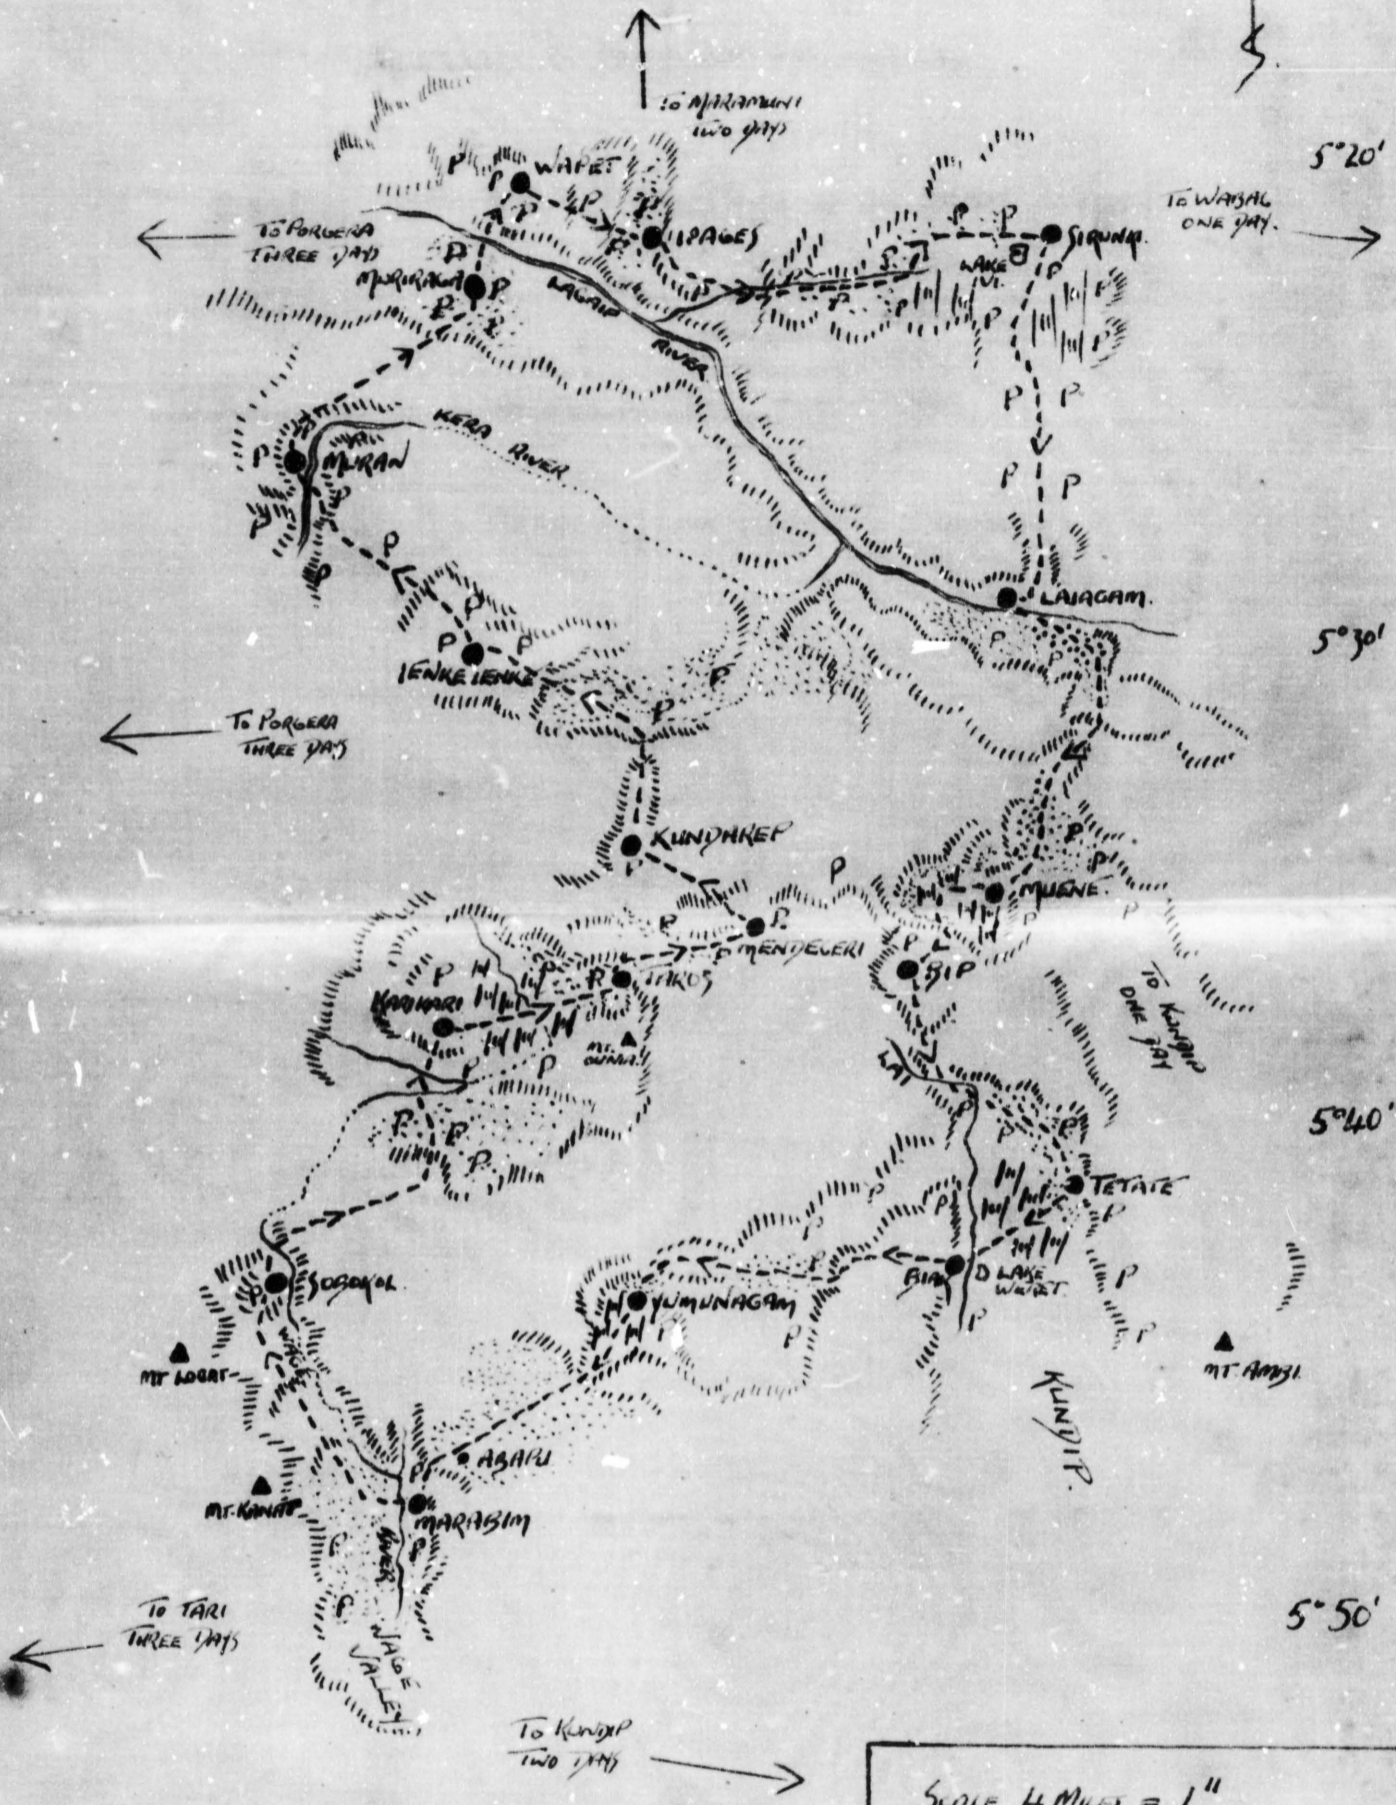 S.
TO MARAMUNI
TWO DAYS
5°20'
WAPET
TO WABAG
ONE DAY.
TO PORGERA
THREE DAYS
IPAGES
SIRUNKI.
LAKE
MURIRAGA
LAGAIP
RIVER
KERA RIVER
MURAN
LAIAGAM.
5°30'
IENKE IENKE
TO PORGERA
THREE DAYS
KUNDHREP
MUENE.
MENDEGERI
BIP
TAKOS
KARIKARI
MT.
TO KUNDIP
ONE DAY
LAI
5°40'
TETATE
BIAK
D LAKE
SOBOKOL
YUMUNAGAM
WAGE
MT LOGAT
MT AMBI.
KUNDIP.
ABARU
MT. KANAT
MARABIM
RIVER
TO TARI
THREE DAYS
5°50'
WAGE
VALLEY
TO KUNDIP
TWO DAYS
SCALE 4 MILES = 1"